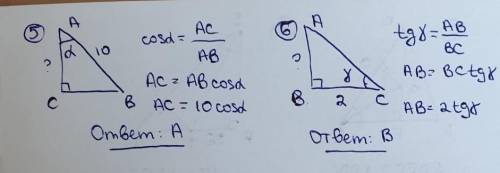 5
A
α
10
?
C
B
cosα = AC/AB
AC = AB cosα
AC = 10 cosα
Ответ: A
6
A
?
γ
B
2
C
tgγ = AB/BC
AB = BC tgγ
AB = 2 tgγ
Ответ: B